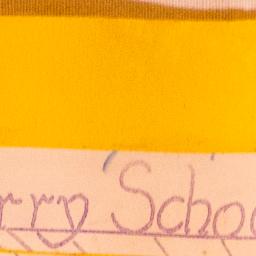 rry Schoo